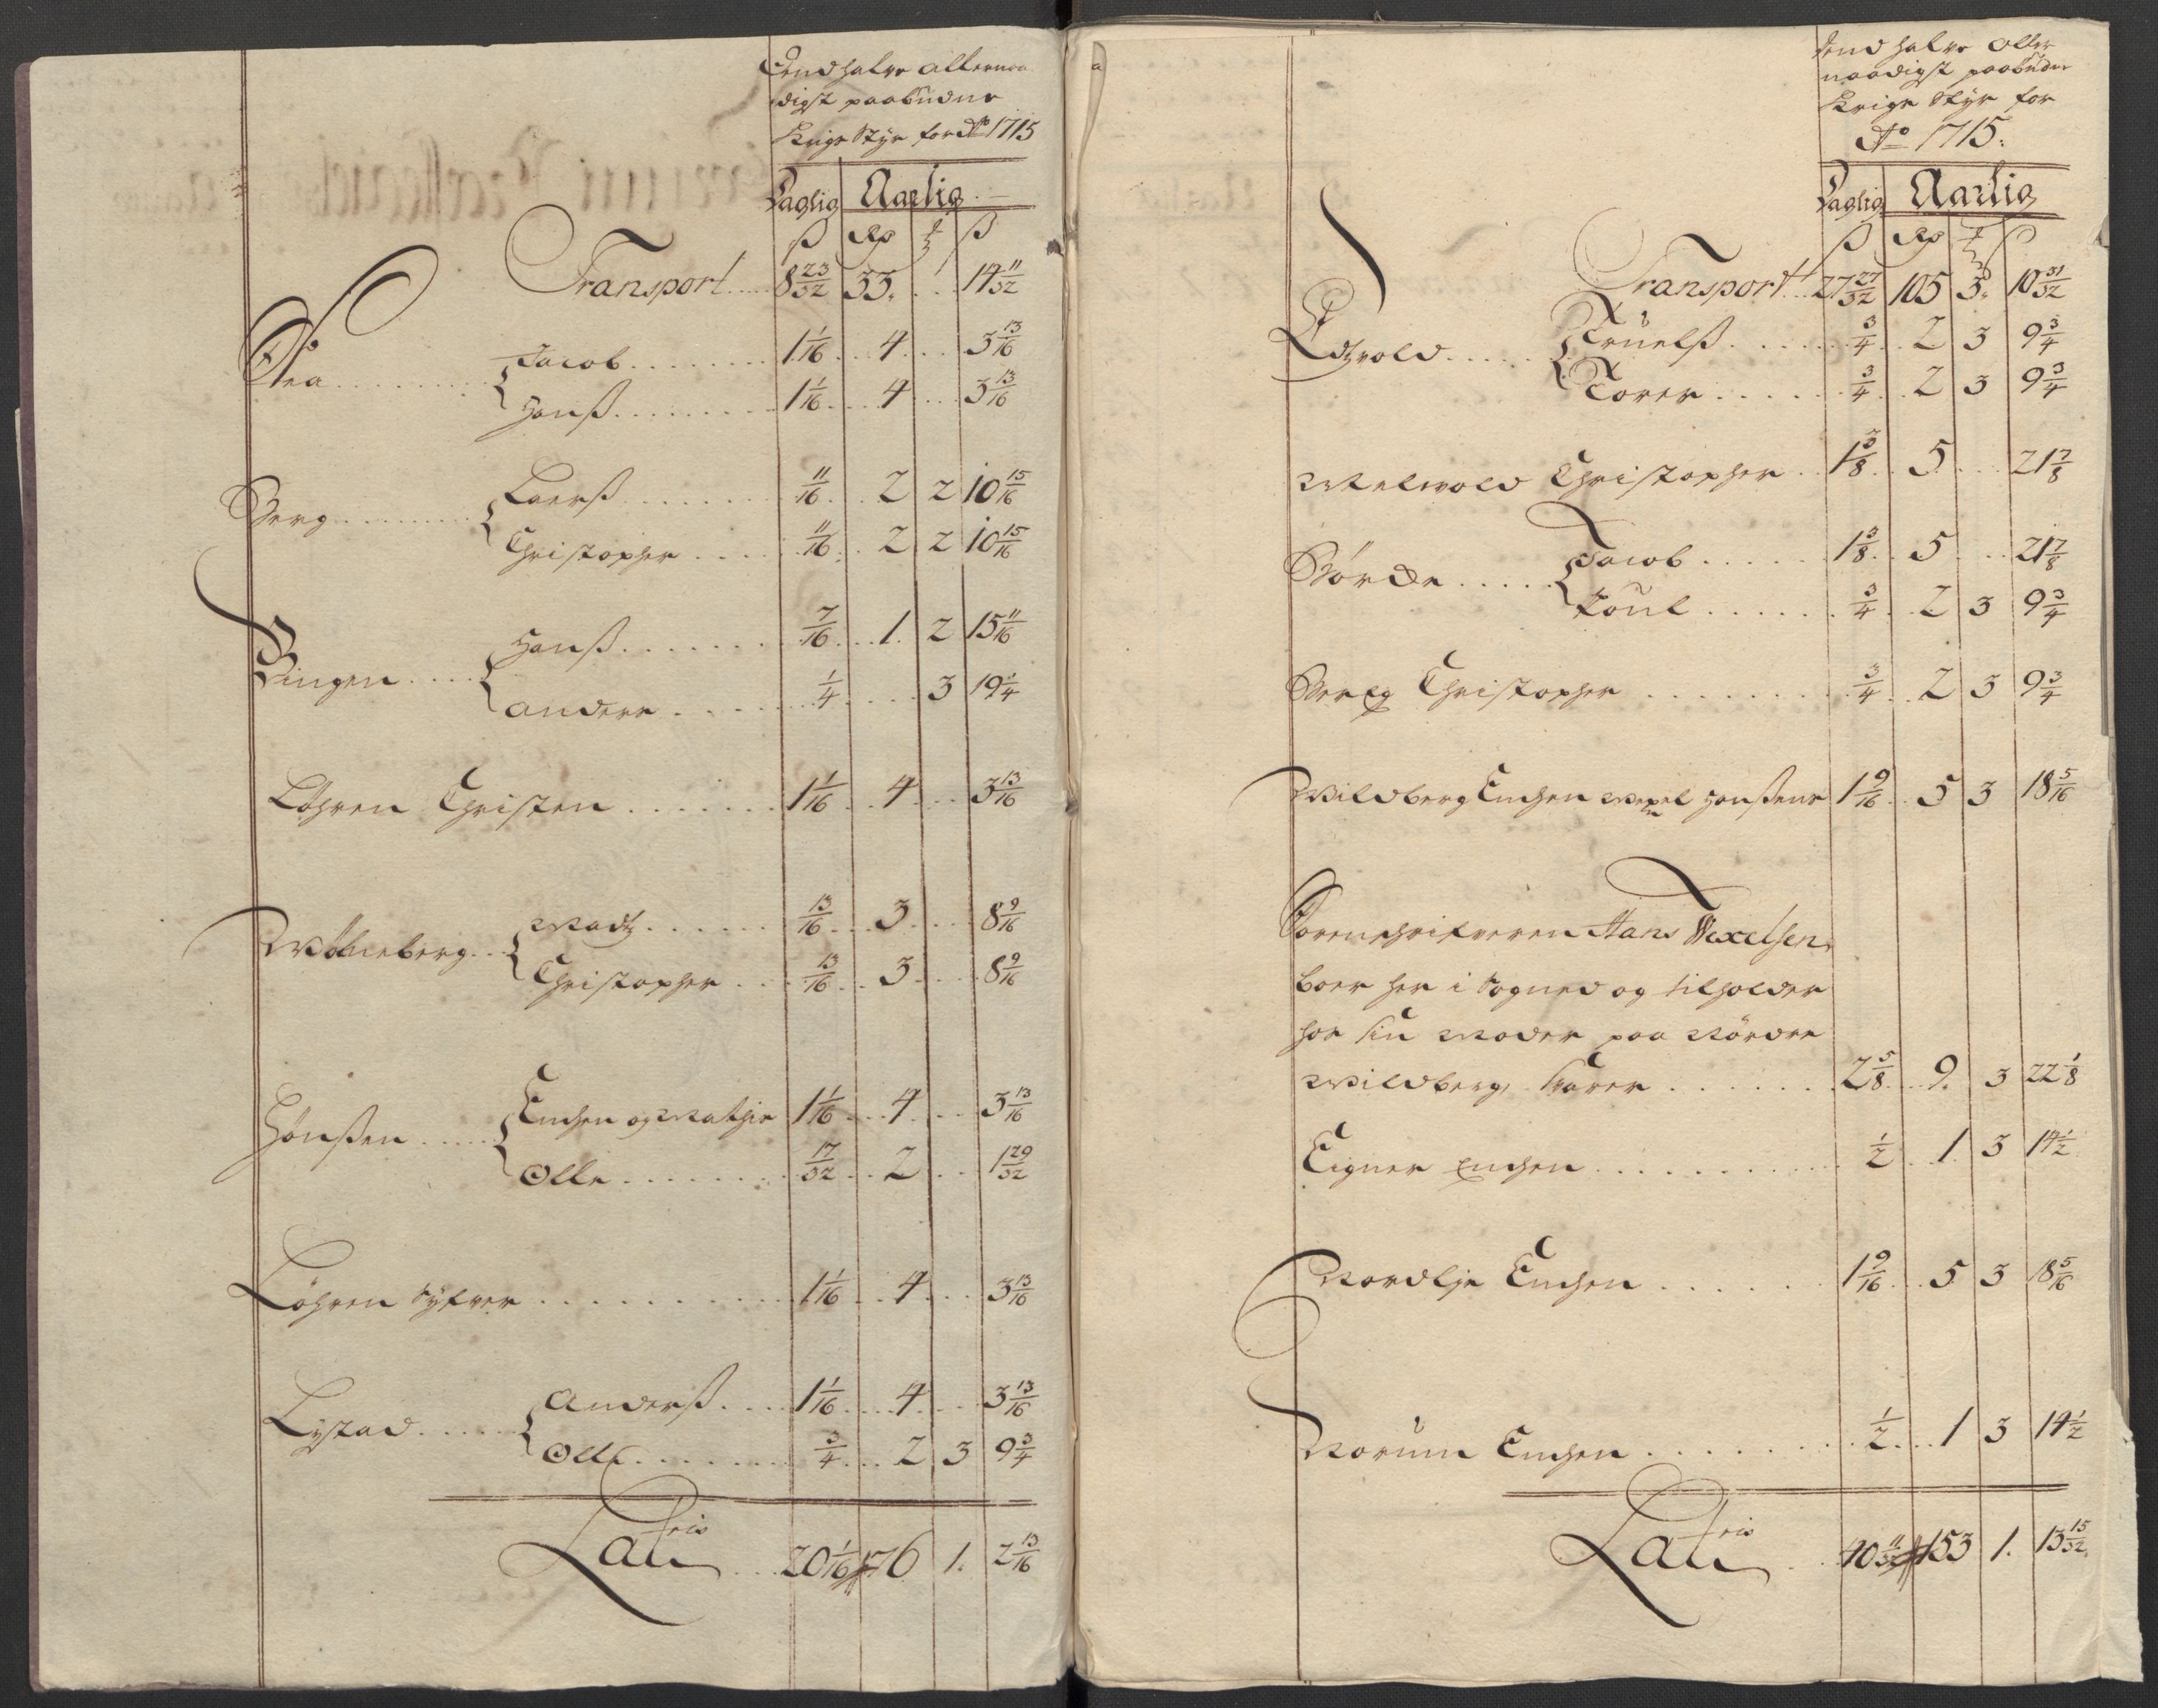 Dend halve allernaa
digst paabudne
Krigs Styr for Ao 1715
Daglig Aarlig
ß Rd ß
Transport 8 23/32 33 . 14 11/32
Jacob 1 1/16 4 3 13/16
Hanß 1 1/16 4 3 13/16
Berg Larß 11/16 2 2 10 15/16
Christopher 11/16 2 2 10 15/16
Bingen Hanß 7/16 1 2 15 11/16
Anders 1/4 3 19 1/4
Løhren Christen 1 1/16 4 3 13/16
Madtz 13/16 3 8 9/16
Christopher 13/16 3 8 9/16
Hønßen Enchen og Mathis 1 1/16 4 3 13/16
Olle 17/32 2 1 29/32
Løhren Syfver 1 1/16 4 3 13/16
Lystad Anderß 1 1/16 4 3 13/16
Olle 3/4 2 3 9 3/4
Lateris 20 1/16 76 1 2 13/16
Dend halve aller
naadigst paabudne
Krigs Styr for
Ao 1715
Daglig Aarlig
ß Rd ß
Transport 27 27/32 105 3 10 31/32
Truelß 3/4 2 3 9 3/4
Torer 3/4 2 3 9 3/4
Melvold Christopher 1 3/8 5 21 7/8
Børde Jacob 1 3/8 5 21 7/8
Poul 3/4 2 3 9 3/4
Berg Christopher 3/4 2 3 9 3/4
Wildberg Enchen Wexel Hanßens 1 9/16 5 3 18 5/16
Sorenschrifveren Hans Wexelsen
boer her i Sogned og tilholder
hos sin Moder paa Nordre
Wildberg, svarer 2 5/8 9 3 22 1/8
Eigner Enchen 1/2 1 3 14 1/2
Nordlie Enchen 1 9/16 5 3 18 5/16
Norum Enchen 1/2 1 3 14 1/2
Lateris 40 11/32 153 1 13 15/32